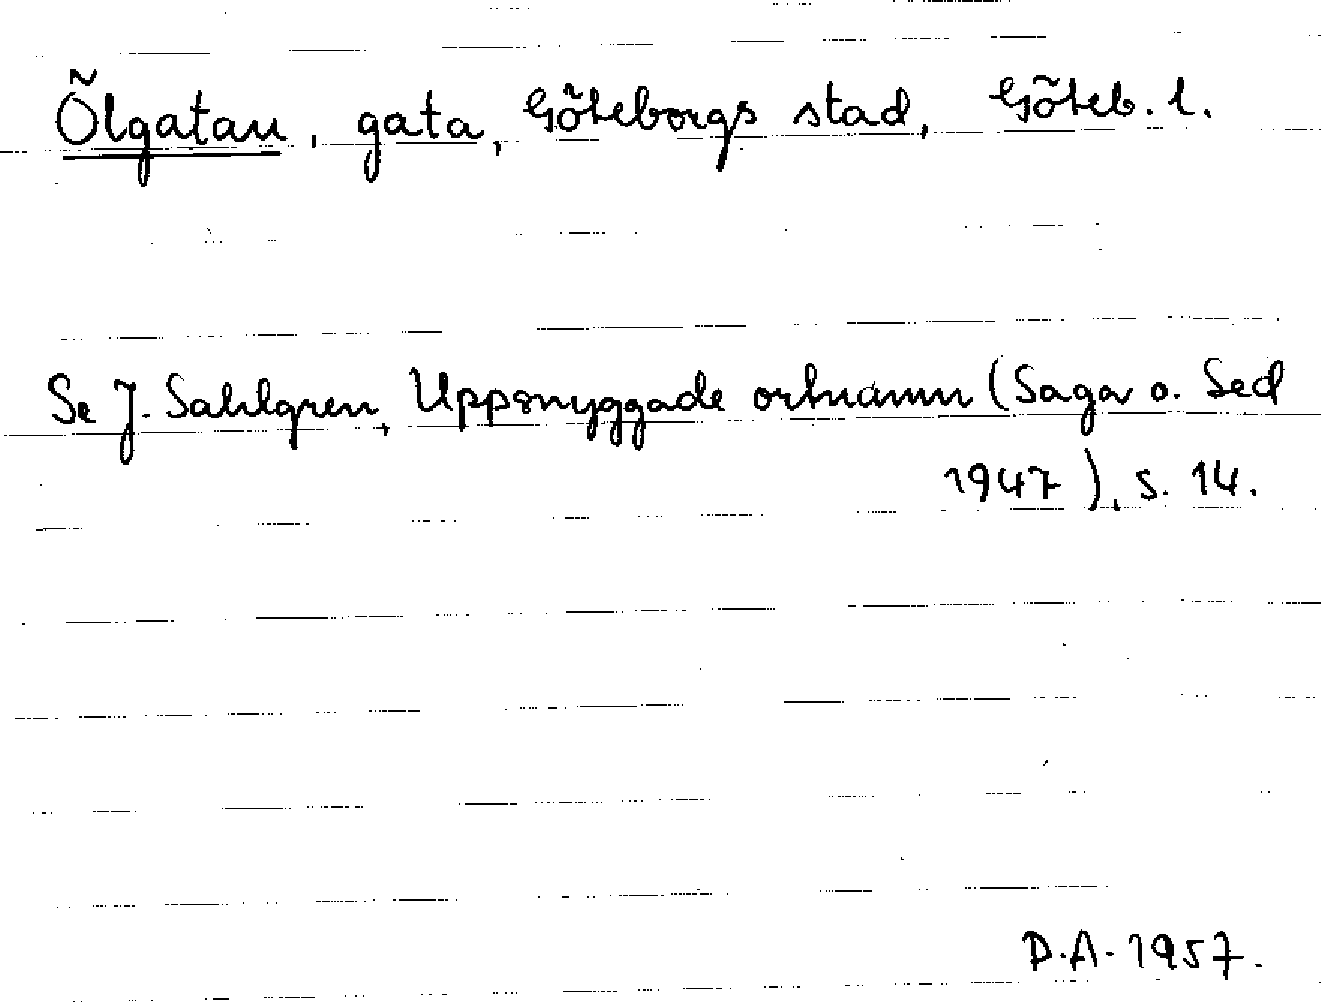 Ölgatan, gata, Göteborgs stad, Göteb. l.
Se J. Sahlgren, Uppsnyggade ortnamn (Saga o. Sed
1947), s. 14.
D.A. 1957.